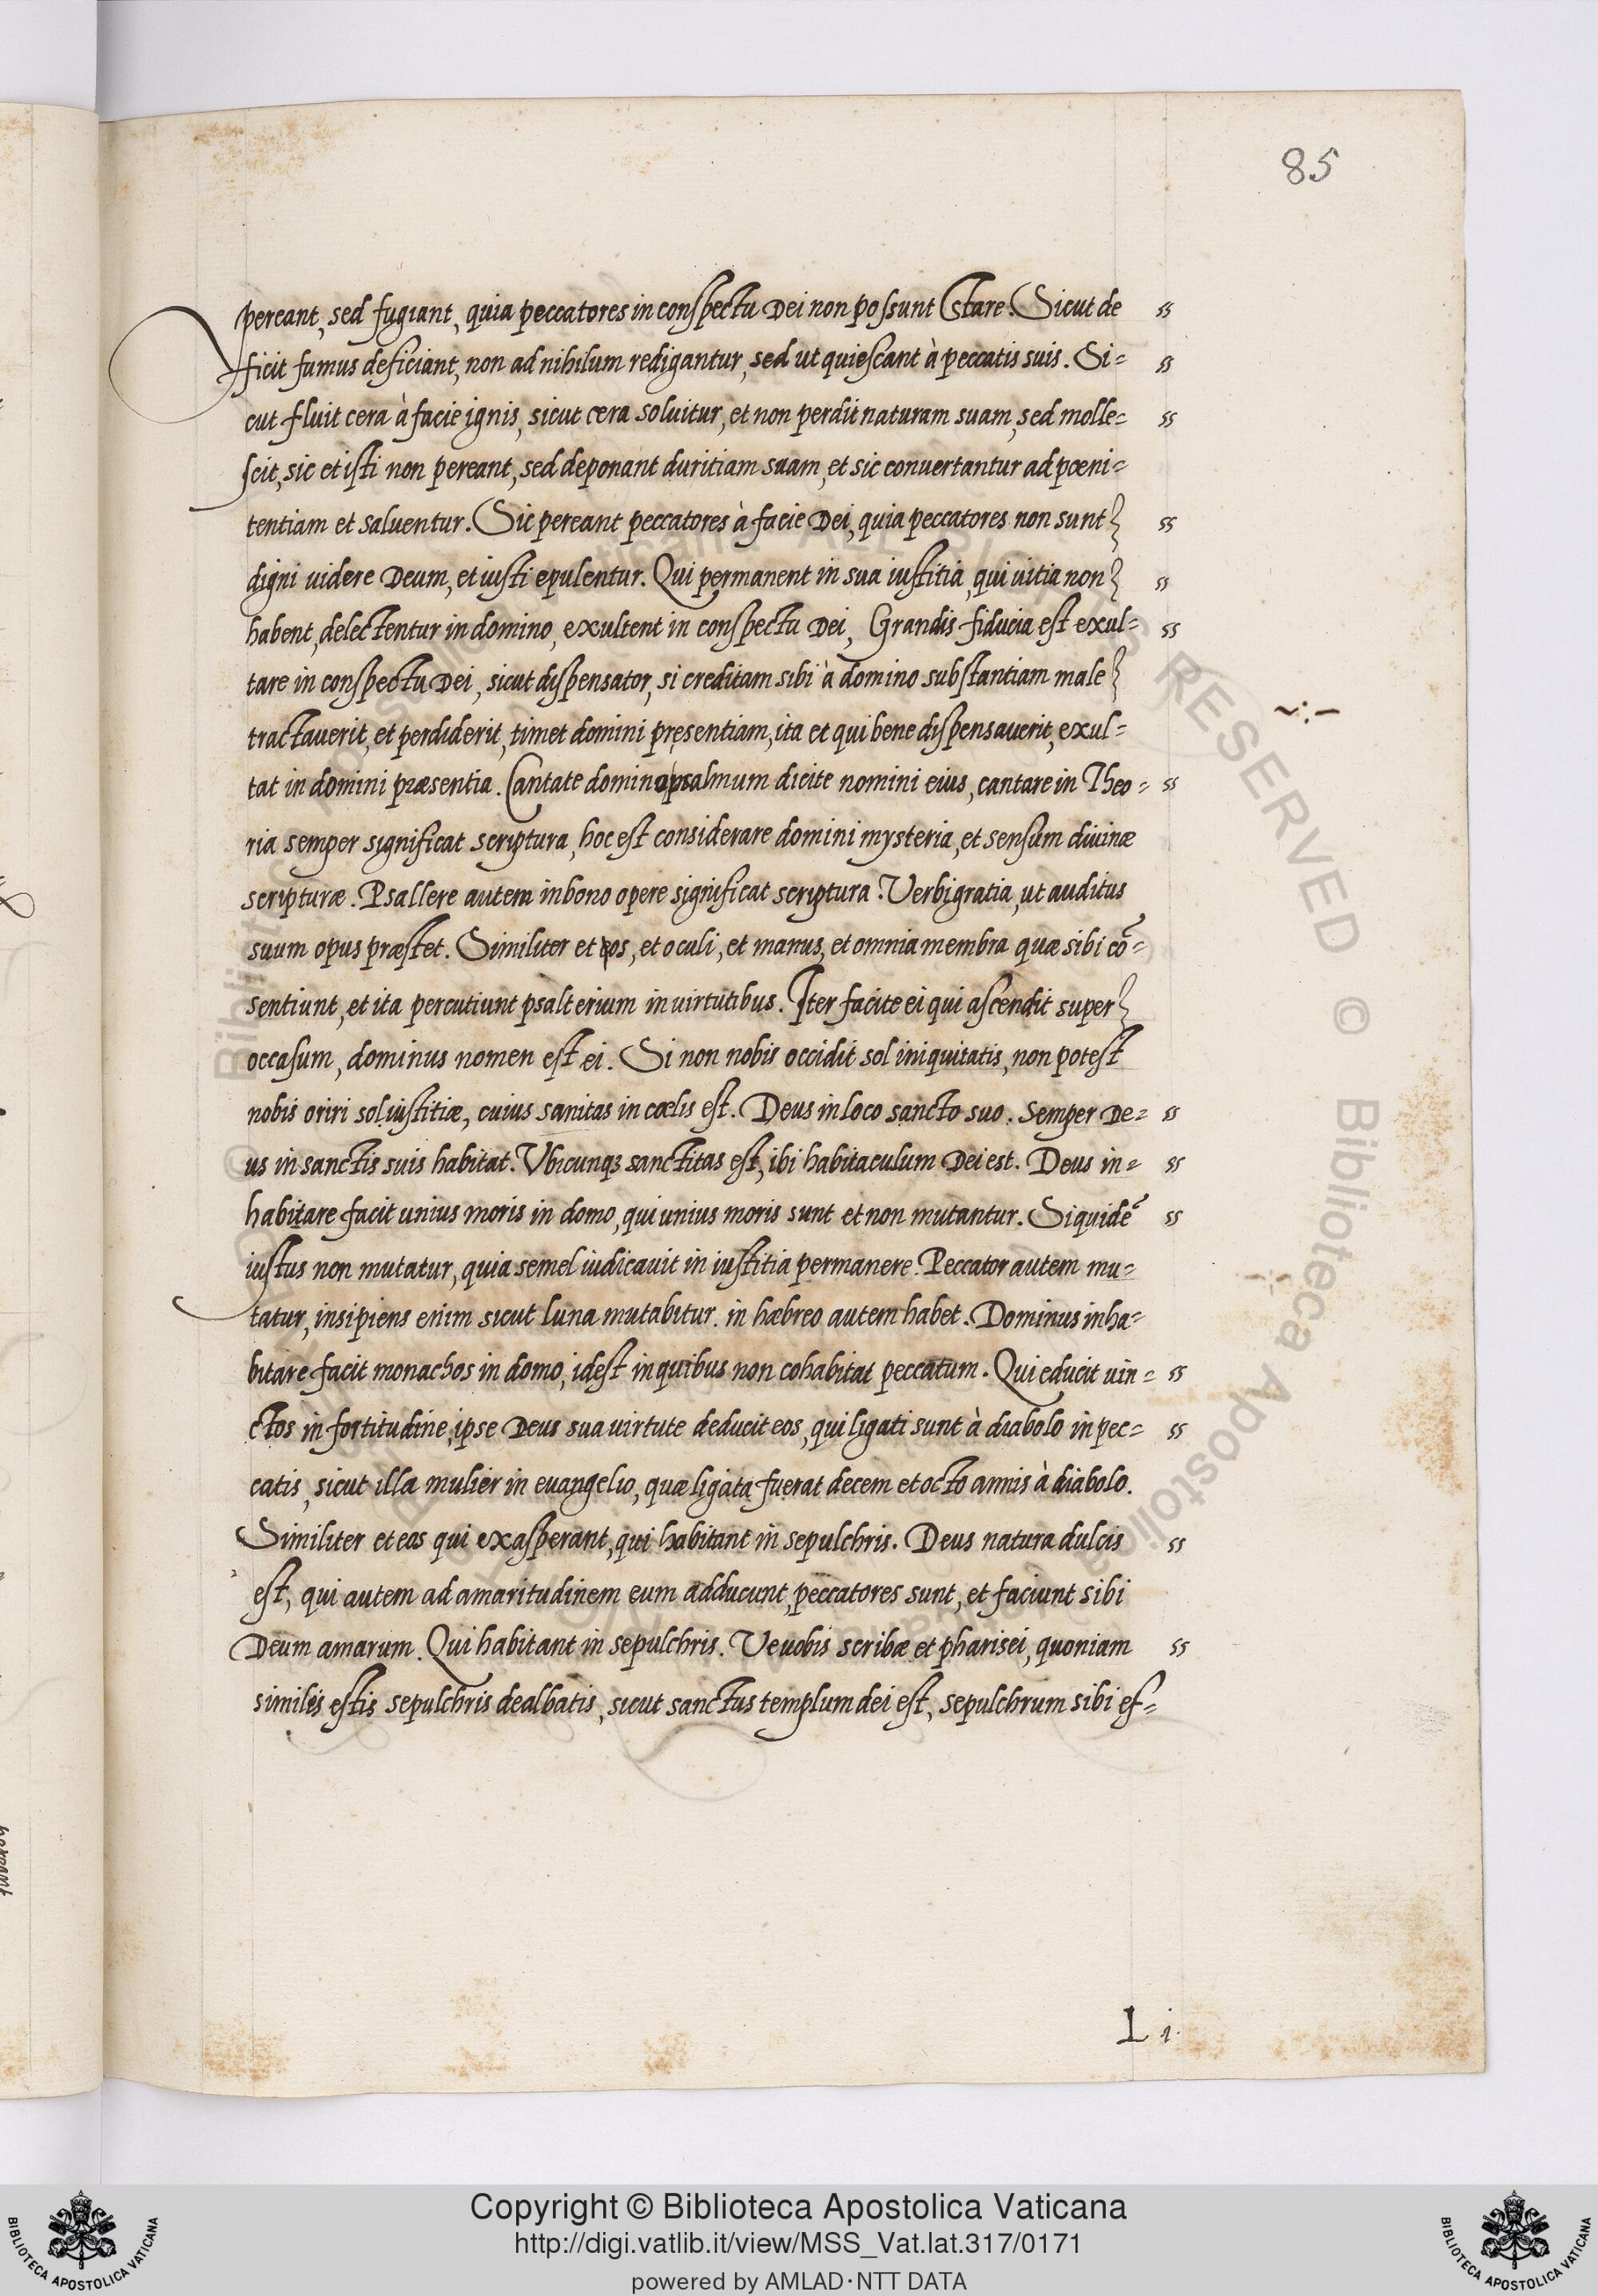 85
pereant, sed fugiant, quia peccatores in conspectu Dei non possunt stare. Sicut de ss
ficit fumus deficiant, non ad nihilum redigantur, sed ut quiescant à peccatis suis. Si= ss
cut fluit cera à facie ignis, sicut cera soluitur, et non perdit naturam suam, sed molle= ss
scit, sic et isti non pereant, sed deponant duritiam suam, et sic conuertantur ad pœni=
tentiam et saluentur. Sic pereant peccatores à facie Dei, quia peccatores non sunt ss
digni uidere Deum, et iusti epulentur. Qui permanent in sua iustitia, qui uitia non ss
habent, delectentur in domino, exultent in conspectu Dei, Grandis fiducia est exul= ss
tare in conspectu Dei, sicut dispensator, si creditam sibi à domino substantiam male
tractauerit, et perdiderit, timet domini pręsentiam, ita et qui bene dispensauerit, exul= ~:-
tat in domini præsentia. Cantate domino psalmum dicite nomini eius, cantare in Theo= ss
ria semper significat scriptura, hoc est considerare domini mysteria, et sensum diuinæ
scripturæ. Psallere autem in bono opere significat scriptura. Verbi gratia, ut auditus
suum opus præstet. Similiter et os, et oculi, et manus, et omnia membra quæ sibi cõ=
sentiunt, et ita percutiunt psalterium in uirtutibus. Iter facite ei qui ascendit super
occasum, dominus nomen est ei. Si non nobis occidit sol iniquitatis, non potest
nobis oriri sol iustitiæ, cuius sanitas in cœlis est. Deus in loco sancto suo. Semper De= ss
us in sanctis suis habitat. Vbicunqꝫ sanctitas est, ibi habitaculum Dei est. Deus in= ss
habitare facit unius moris in domo, qui unius moris sunt et non mutantur. Siquidẽ ss
iustus non mutatur, quia semel iudicauit in iustitia permanere. Peccator autem mu=
tatur, insipiens enim sicut luna mutabitur. in hæbreo autem habet. Dominus inha=
bitare facit monachos in domo, idest in quibus non cohabitat peccatum. Qui educit uin= ss
ctos in fortitudine, ipse Deus sua uirtute deducit eos, qui ligati sunt à diabolo in pec= ss
catis, sicut illa mulier in euangelio, quæ ligata fuerat decem et octo annis à diabolo.
Similiter et eos qui exasperant, qui habitant in sepulchris. Deus natura dulcis ss
est, qui autem ad amaritudinem eum adducunt, peccatores sunt, et faciunt sibi
Deum amarum. Qui habitant in sepulchris. Ve uobis scribæ et pharisei, quoniam ss
similes estis sepulchris dealbatis, sicut sanctus templum dei est, sepulchrum sibi ef=
L i.
Copyright © Biblioteca Apostolica Vaticana
http://digi.vatlib.it/view/MSS_Vat.lat.317/0171
powered by AMLAD·NTT DATA
BIBLIOTECA APOSTOLICA VATICANA
BIBLIOTECA APOSTOLICA VATICANA